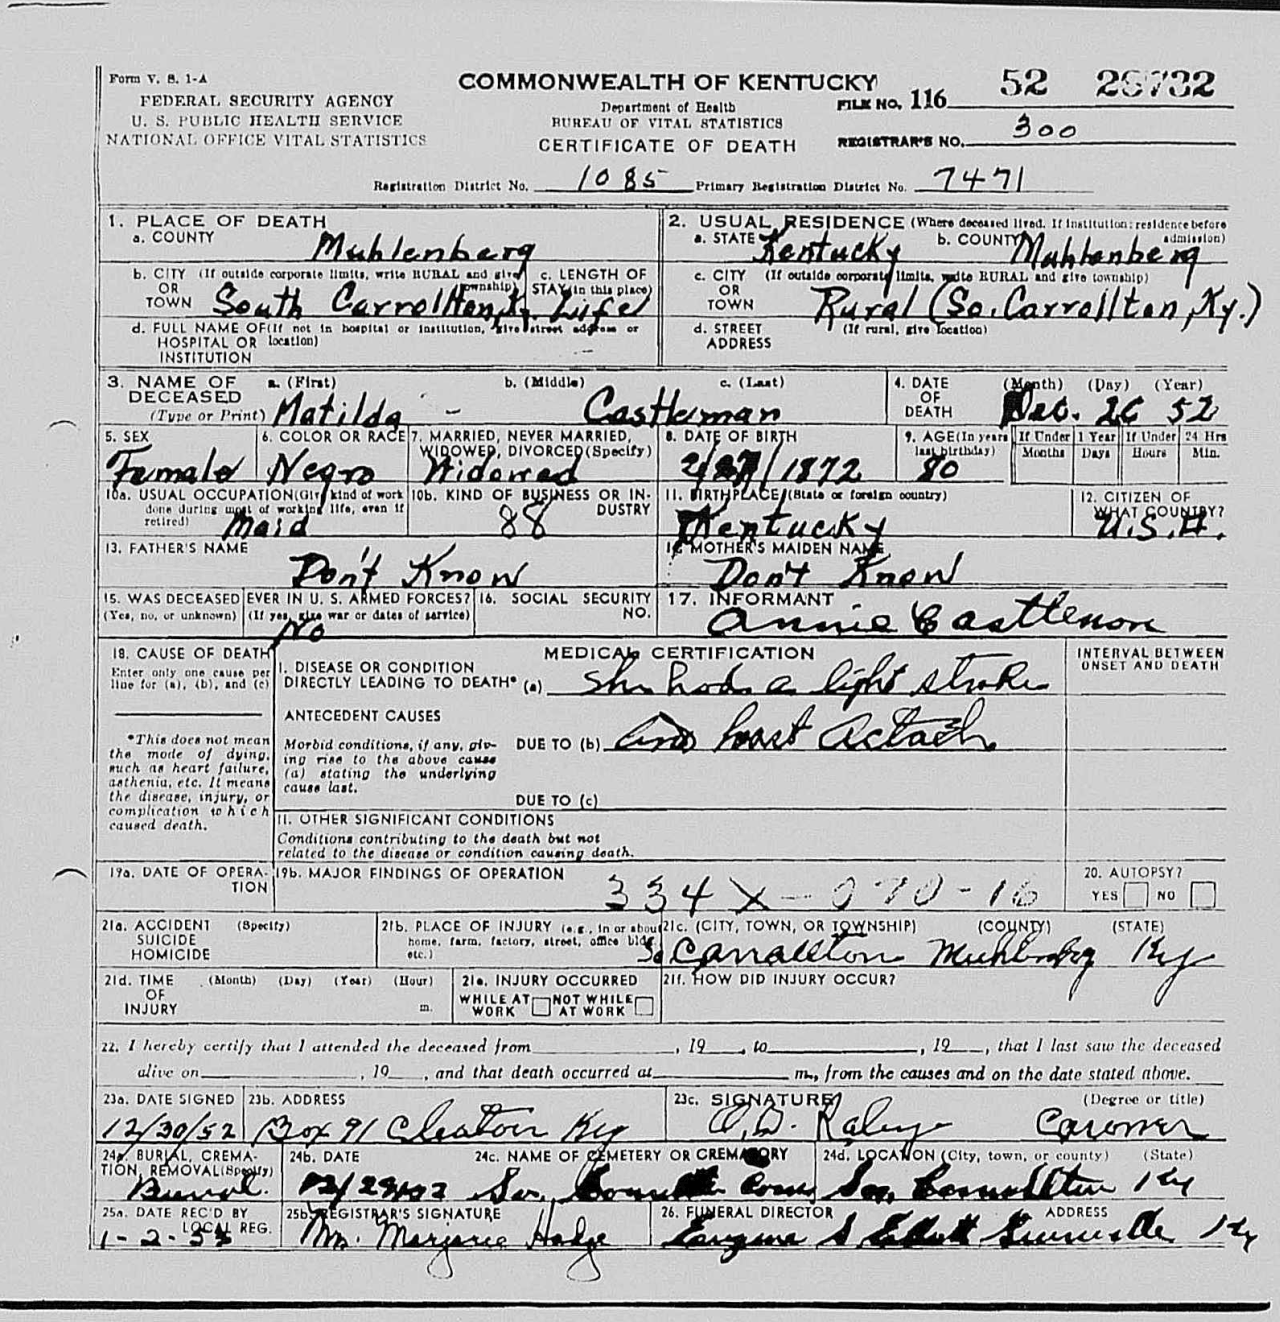 Form V. S. 1-A
COMMONWEALTH OF KENTUCKY
FEDERAL SECURITY AGENCY
U. S. PUBLIC HEALTH SERVICE
NATIONAL OFFICE VITAL STATISTICS
Department of Health
BUREAU OF VITAL STATISTICS
CERTIFICATE OF DEATH
FILE NO. 116 52 29732
REGISTRAR'S NO. 300
Registration District No. 1085 Primary Registration District No. 7471
1. PLACE OF DEATH
a. COUNTY Muhlenberg
b. CITY (If outside corporate limits, write RURAL and give township)
OR TOWN South Carrollton, Ky.
c. LENGTH OF STAY (in this place) Life
d. FULL NAME OF (If not in hospital or institution, give street address or location)
HOSPITAL OR INSTITUTION
2. USUAL RESIDENCE (Where deceased lived. If institution: residence before admission)
a. STATE Kentucky b. COUNTY Muhlenberg
c. CITY (If outside corporate limits, write RURAL and give township)
OR TOWN Rural (So. Carrollton, Ky.)
d. STREET ADDRESS (If rural, give location)
3. NAME OF DECEASED (Type or Print)
a. (First) b. (Middle) c. (Last)
Matilda - Castleman
4. DATE OF DEATH (Month) (Day) (Year)
Dec. 26 52
5. SEX Female
6. COLOR OR RACE Negro
7. MARRIED, NEVER MARRIED, WIDOWED, DIVORCED (Specify) Widowed
8. DATE OF BIRTH 2/27/1872
9. AGE (In years last birthday) 80
If Under 1 Year Months Days
If Under 24 Hrs Hours Min.
10a. USUAL OCCUPATION (Give kind of work done during most of working life, even if retired) Maid
10b. KIND OF BUSINESS OR INDUSTRY 88
11. BIRTHPLACE (State or foreign country) Kentucky
12. CITIZEN OF WHAT COUNTRY? U.S.A.
13. FATHER'S NAME Don't Know
14. MOTHER'S MAIDEN NAME Don't Know
15. WAS DECEASED EVER IN U. S. ARMED FORCES?
(Yes, no, or unknown) (If yes, give war or dates of service) No
16. SOCIAL SECURITY NO.
17. INFORMANT Annie Castlemon
18. CAUSE OF DEATH
Enter only one cause per line for (a), (b), and (c)
*This does not mean the mode of dying, such as heart failure, asthenia, etc. It means the disease, injury, or complication which caused death.
MEDICAL CERTIFICATION
INTERVAL BETWEEN ONSET AND DEATH
I. DISEASE OR CONDITION DIRECTLY LEADING TO DEATH* (a) She had a light stroke
ANTECEDENT CAUSES
Morbid conditions, if any, giving rise to the above cause (a) stating the underlying cause last.
DUE TO (b) and heart Actack
DUE TO (c)
II. OTHER SIGNIFICANT CONDITIONS
Conditions contributing to the death but not related to the disease or condition causing death.
19a. DATE OF OPERATION
19b. MAJOR FINDINGS OF OPERATION
334 X - 070 - 16
20. AUTOPSY?
YES NO
21a. ACCIDENT SUICIDE HOMICIDE (Specify)
21b. PLACE OF INJURY (e.g., in or about home, farm, factory, street, office bldg. etc.)
21c. (CITY, TOWN, OR TOWNSHIP) (COUNTY) (STATE)
So Carrollton Muhlenberg Ky
21d. TIME OF INJURY (Month) (Day) (Year) (Hour) m.
21e. INJURY OCCURRED
WHILE AT WORK NOT WHILE AT WORK
21f. HOW DID INJURY OCCUR?
22. I hereby certify that I attended the deceased from , 19 , to , 19 , that I last saw the deceased
alive on , 19 , and that death occurred at m., from the causes and on the date stated above.
23a. DATE SIGNED 12/30/52
23b. ADDRESS Box 91 Cleaton Ky
23c. SIGNATURE (Degree or title)
O.D. Raley Coroner
24a. BURIAL, CREMATION, REMOVAL (Specify) Burial.
24b. DATE 12/29/52
24c. NAME OF CEMETERY OR CREMATORY So. Cem
24d. LOCATION (City, town, or county) (State)
So. Carrollton Ky
25a. DATE REC'D BY LOCAL REG. 1-2-53
25b. REGISTRAR'S SIGNATURE Mrs. Marjorie Hodge
26. FUNERAL DIRECTOR ADDRESS
Eugene S Greenville Ky